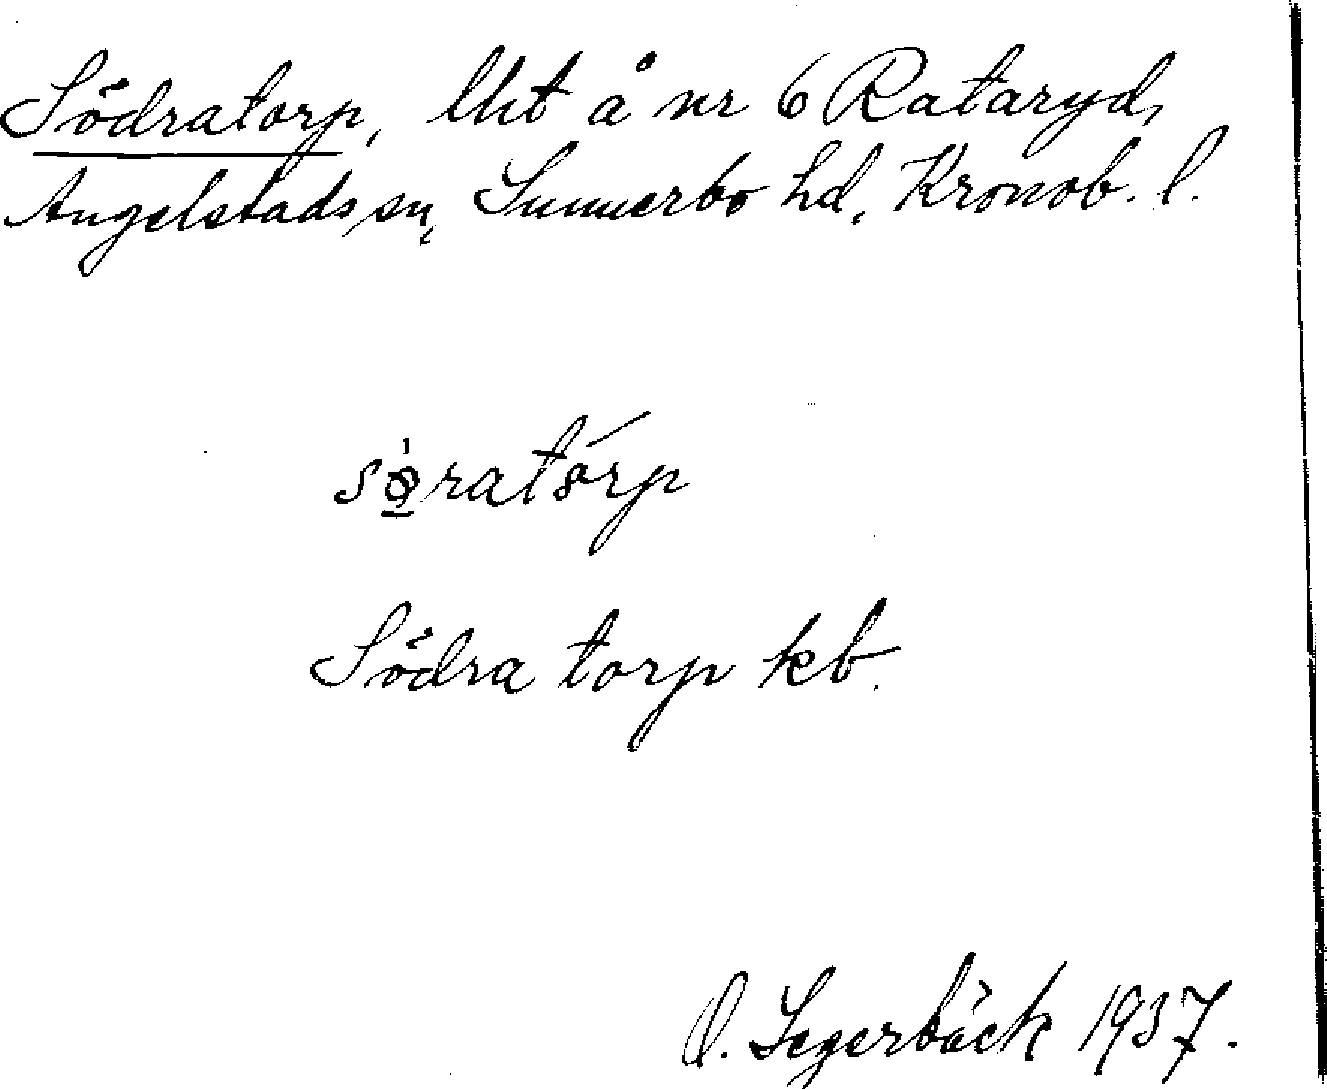 Södratorp, lht å nr 6 Rataryd,
Angelstads sn, Sunnerbo hd, Kronob. l.
söratórp
Södra torp kb.
O. Segerbäck 1937.